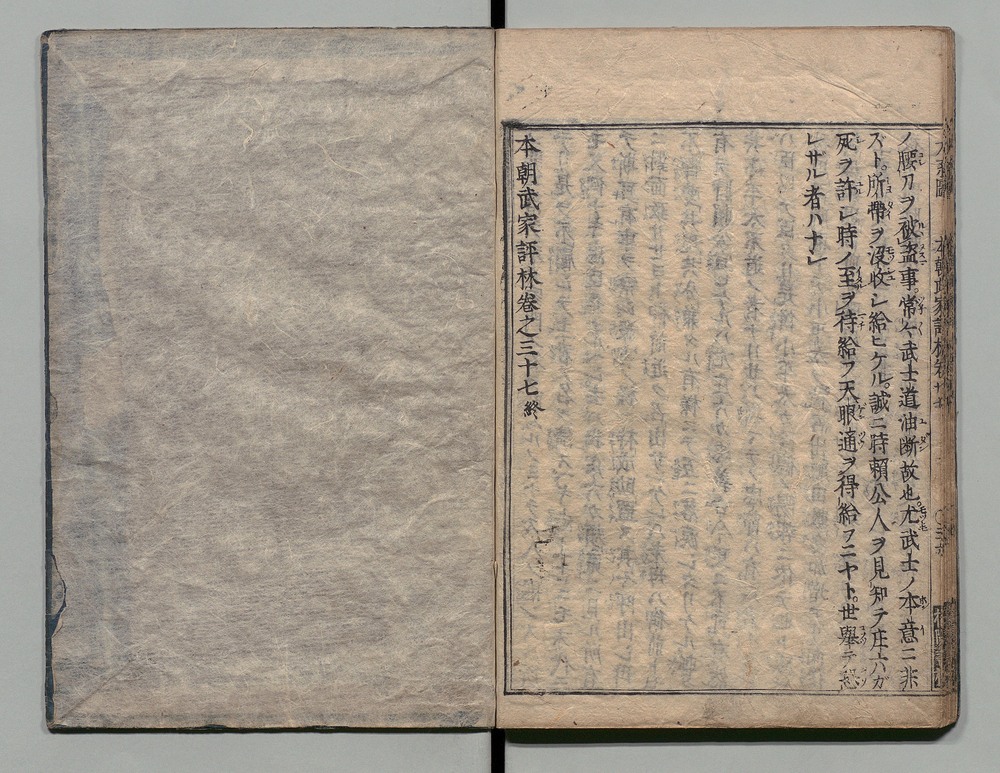 ノ腰刀ヲ被盗事常々武士道油断故也尤武士ノ本意ニ非
ズト所帯ヲ没收シ給ヒケル誠ニ時頼公人ヲ見知テ庄六ガ
死ヲ許シ時ノ至ヲ待給フ天眼通ヲ得給フニヤト世擧テ恐
レザル者ハナシ
本朝武家評林巻之三十七終